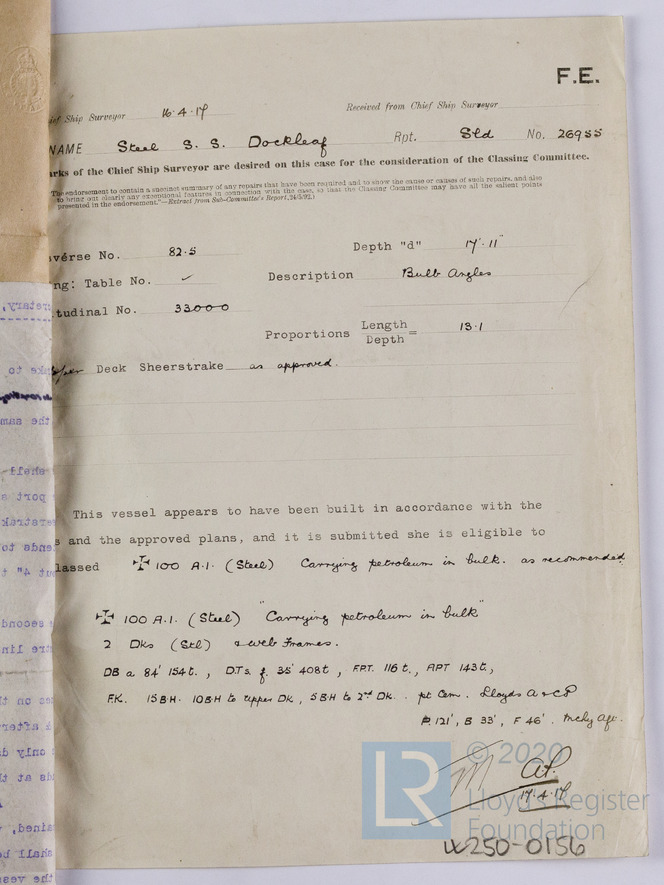 F.E.
ief Ship Surveyor 16.4.17 Received from Chief Ship Surveyor
NAME Steel S. S. Dockleaf Rpt. Sld No. 26955
arks of the Chief Ship Surveyor are desired on this case for the consideration of the Classing Committee.
The endorsement to contain a succinct summary of any repairs that have been required and to show the cause or causes of such repairs, and also
to bring out clearly any exceptional features in connection with the case, so that the Classing Committee may have all the salient points
presented in the endorsement."—Extract from Sub-Committee's Report, 24/5/92.)
verse No. 82.5 Depth "d" 17'.11"
ng: Table No. ✓ Description Bulb Angles
tudinal No. 33000
Proportions Length/Depth = 13.1
Deck Sheerstrake as approved.
This vessel appears to have been built in accordance with the
s and the approved plans, and it is submitted she is eligible to
lassed ✠ 100 A.1. (Steel) Carrying petroleum in bulk. as recommended
✠ 100 A.1. (Steel) "Carrying petroleum in bulk"
2 Dks (Stl) & web Frames.
DB a 84' 154t., D.Ts. f 35' 408t, F.P.T. 116t., APT 143t.,
F.K. 15BH. 10BH to upper DK, 5BH to 2nd DK. pt Cem. Lloyds A & CP
P. 121', B 33', F 46'. Mchy Aft.
17.4.17
LR
© 2020
Lloyd's Register
Foundation
W250-0156